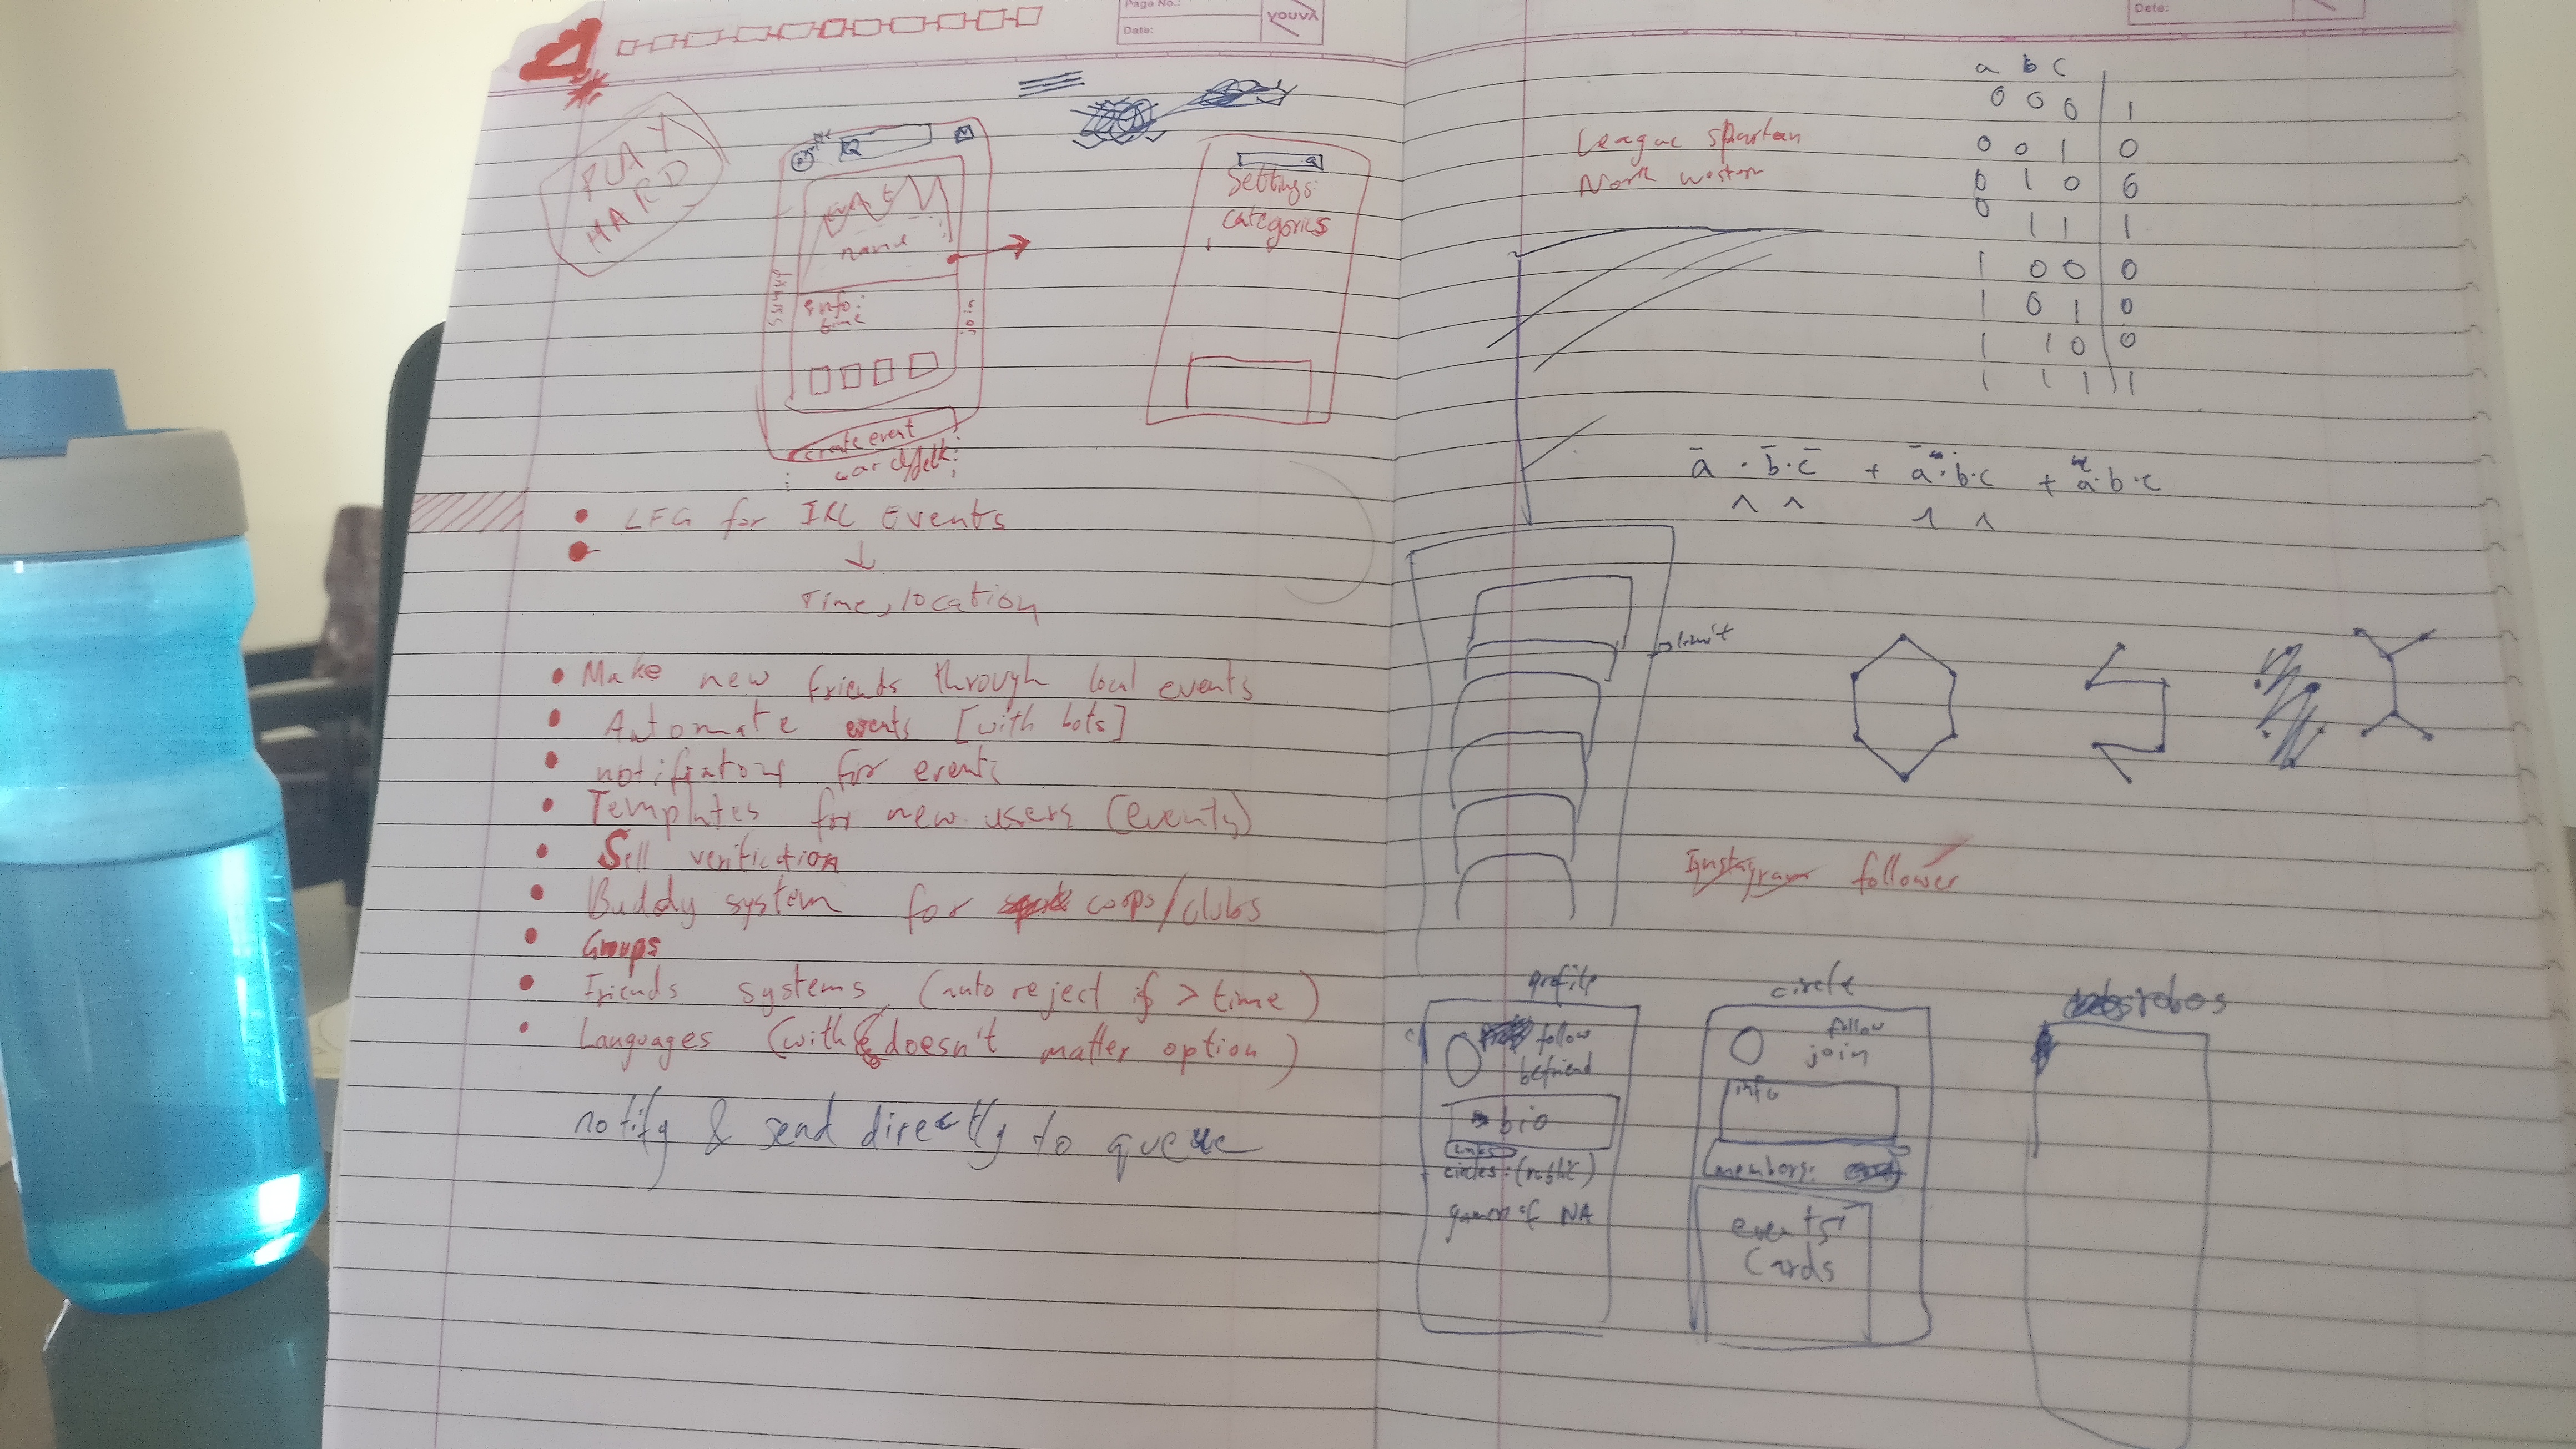 Page No.:
Date:
YOUVA
Date:
PLAY
HARD
name
info:
time
join
create event
Settings:
categories
• LFG for IRL Events
Time, location
• Make new friends through local events
• Automate events [with bots]
• notifications for events
• Templates for new users (events)
• Sell verifiction
• Buddy system for coops/clubs
• Groups
• Friends systems (auto reject if > time)
• Languages (with doesn't matter option)
notify & send directly to queue
League Spartan
North western
a b c
0 0 0 1
0 0 1 0
0 1 0 0
0 1 1 1
1 0 0 0
1 0 1 0
1 1 0 0
1 1 1 1
ā · b̄ · c̄ + ā · b · c + a · b · c
limit
Instagram follower
profile
follow
befriend
bio
links
circles: (public)
NA
circle
follow
join
info
members:
events
Cards